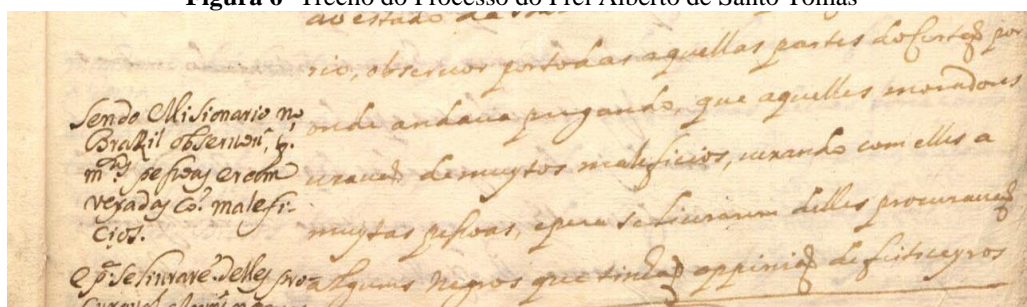 Figura 6 Trecho do Processo do Frei Alberto de Santo Tomás
ao estado da
rio, observou por todas aquellas partes do sertaõ por
onde andava pregando, que aquelles moradores
uzavaõ de muytos maleficios, vexando com elles a
muytas pessoas, e pera se livrarem delles procuravaõ
alguns negros que tinhaõ oppiniaõ de feiticeyros
Sendo Misionario no
Brazil observou, q.
m.tas pessoas eraõ
vexadas cõ malefi-
cios.
E p.ª se livrarẽ delles pro-